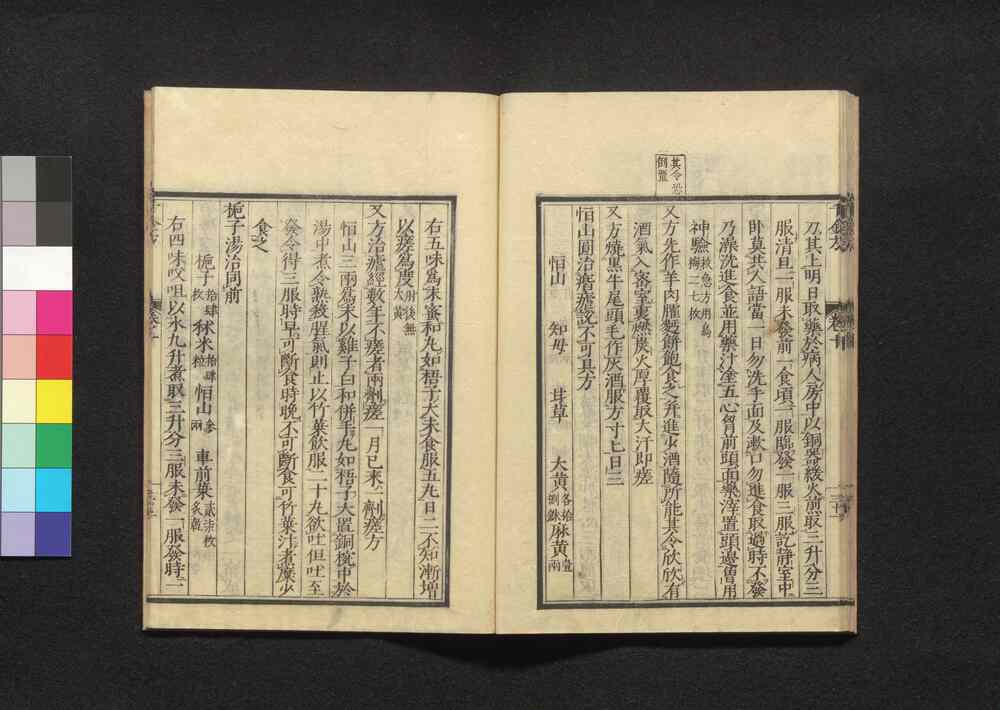 其令恐
倒置
刀其上明日取藥於病人房中以銅器緩火煎取三升分三
服清旦一服未發前一食頃一服臨發一服三服訖靜室中
臥莫共人語當一日勿洗手面及漱口勿進食取過時不發
乃澡洗進食並用藥汁塗五心胷前頭面藥滓置頭邊曽用
神驗救急方用烏梅二七枚
又方先作羊肉臛麪餅飽食之并進少酒隨所能其令欣欣有
酒氣入密室裏燃炭火厚覆取大汗即瘥
又方燒黒牛尾頭毛作灰酒服方寸匕日三
恒山圓治痎瘧說不可具方
恒山 知母 甘草 大黃各拾捌銖麻黃壹兩
右五味爲末蜜和丸如梧子大未食服五丸日二不知漸增
以瘥爲度肘後無大黃
又方治瘧經數年不瘥者兩劑瘥一月已來一劑瘥方
恒山三兩爲末以雞子白和併手丸如梧子大置銅椀中於
湯中煮令熟殺腥氣則止以竹葉飲服二十丸欲吐但吐至
發令得三服時早可斷食時晚不可斷食可竹葉汁煮糜少
食之
梔子湯治同前
梔子拾肆枚 秫米拾肆粒 恒山叄兩 車前葉貳柒枚炙乾
右四味㕮咀以水九升煮取三升分三服未發一服發時一